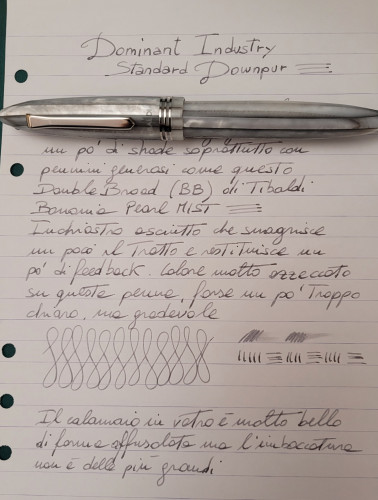 Dominant Industry
Standard Downpur
un po' di shade soprattutto con
pennini generosi come questo
Double Broad (BB) di Tibaldi
Bononia Pearl MIST
Inchiostro asciutto che smagrisce
un poco il Tratto e restituisce un
po' di feedback. Colore molto azzeccato
su questa penna, forse un po' Troppo
chiaro, ma gradevole
Il calamaio in vetro è molto bello
di forma affusolata ma l'imboccatura
non è delle più grandi